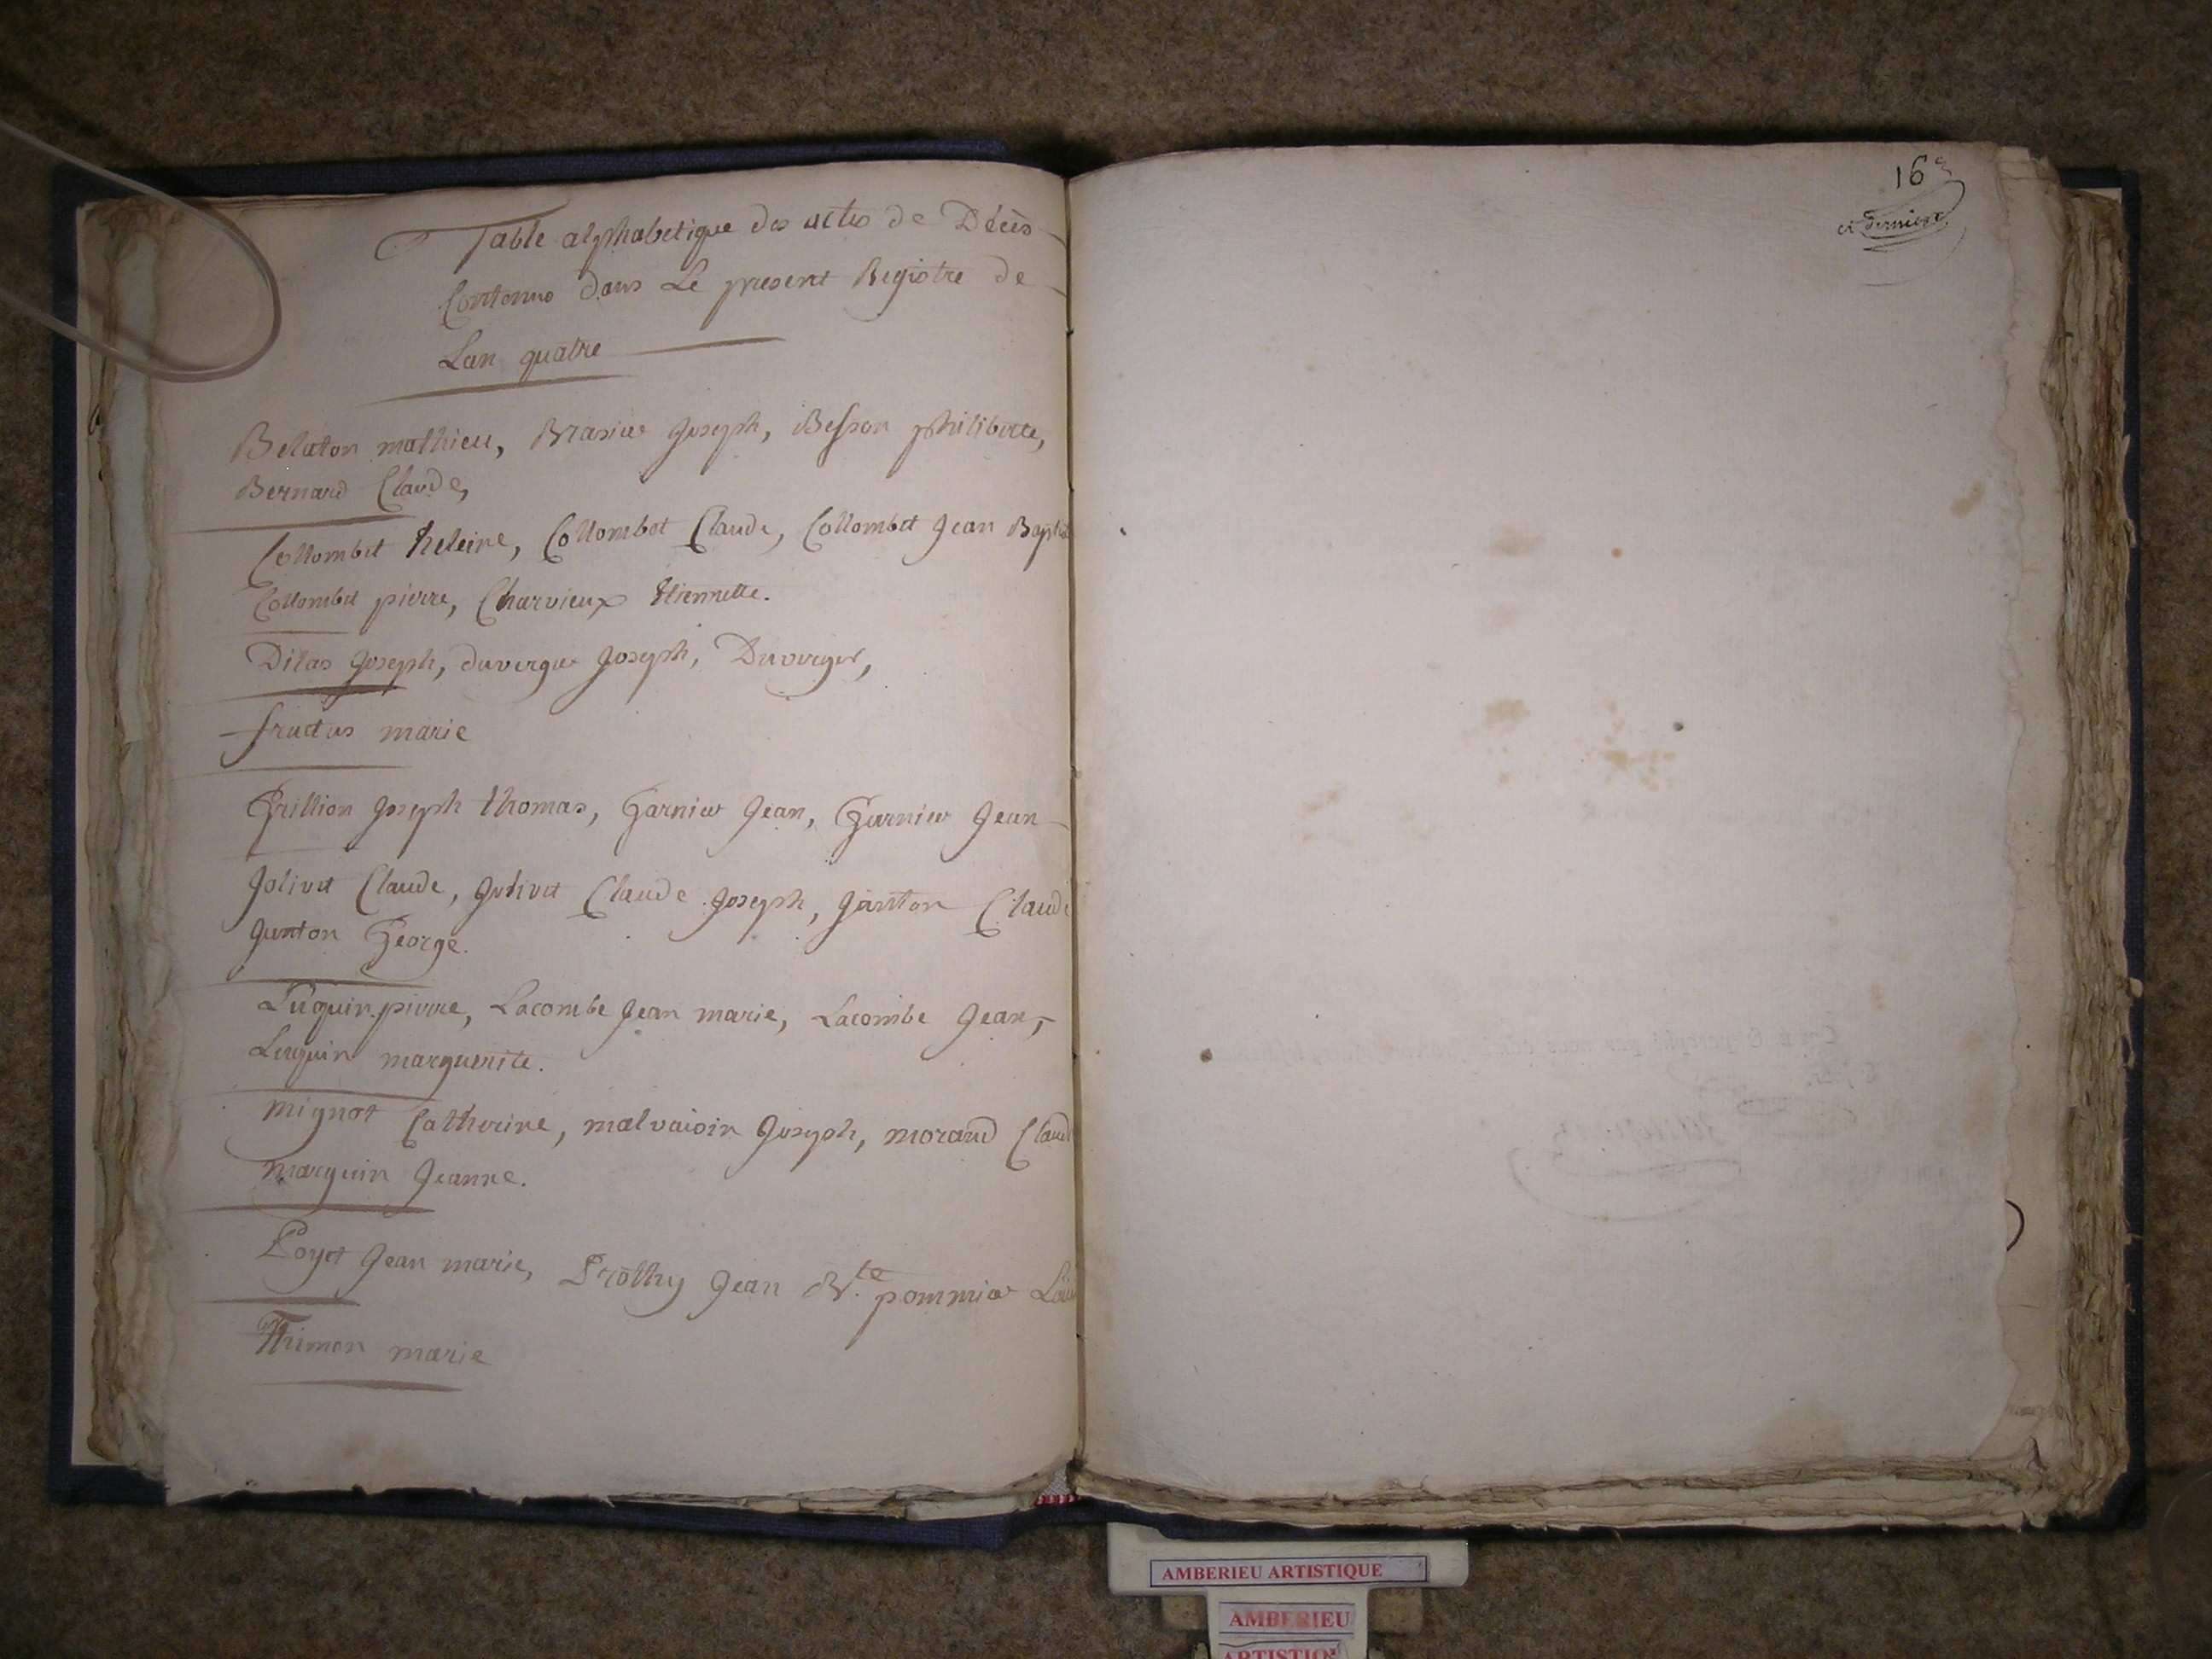 Table alphabetique des actes de Décès
Contenus dans Le present Registre de
Lan quatre
Belaton mathieu, Brasier Joseph, Besson philiberte,
Bernard Claude,
Collombet heleine, Collombet Claude, Collombet Jean Baptist
Collombet pierre, Charvieux Etiennette.
Dilas Joseph, duverger Joseph, Duverger,
fructus marie
Grillion Joseph thomas, Garnier Jean, Garnier Jean
Jolivet Claude, Jolivet Claude Joseph, Janton Claude
Janton George.
Luquin pierre, Lacombe Jean marie, Lacombe Jean,
Luquin marguerite.
mignot Catherine, malvaisin Joseph, morand Claud
marguin Jeanne.
Poyet Jean marie, Prothy Jean B.te pommier
Thimon marie
16e
et dernier
AMBERIEU ARTISTIQUE
AMBERIEU
ARTISTIQUE